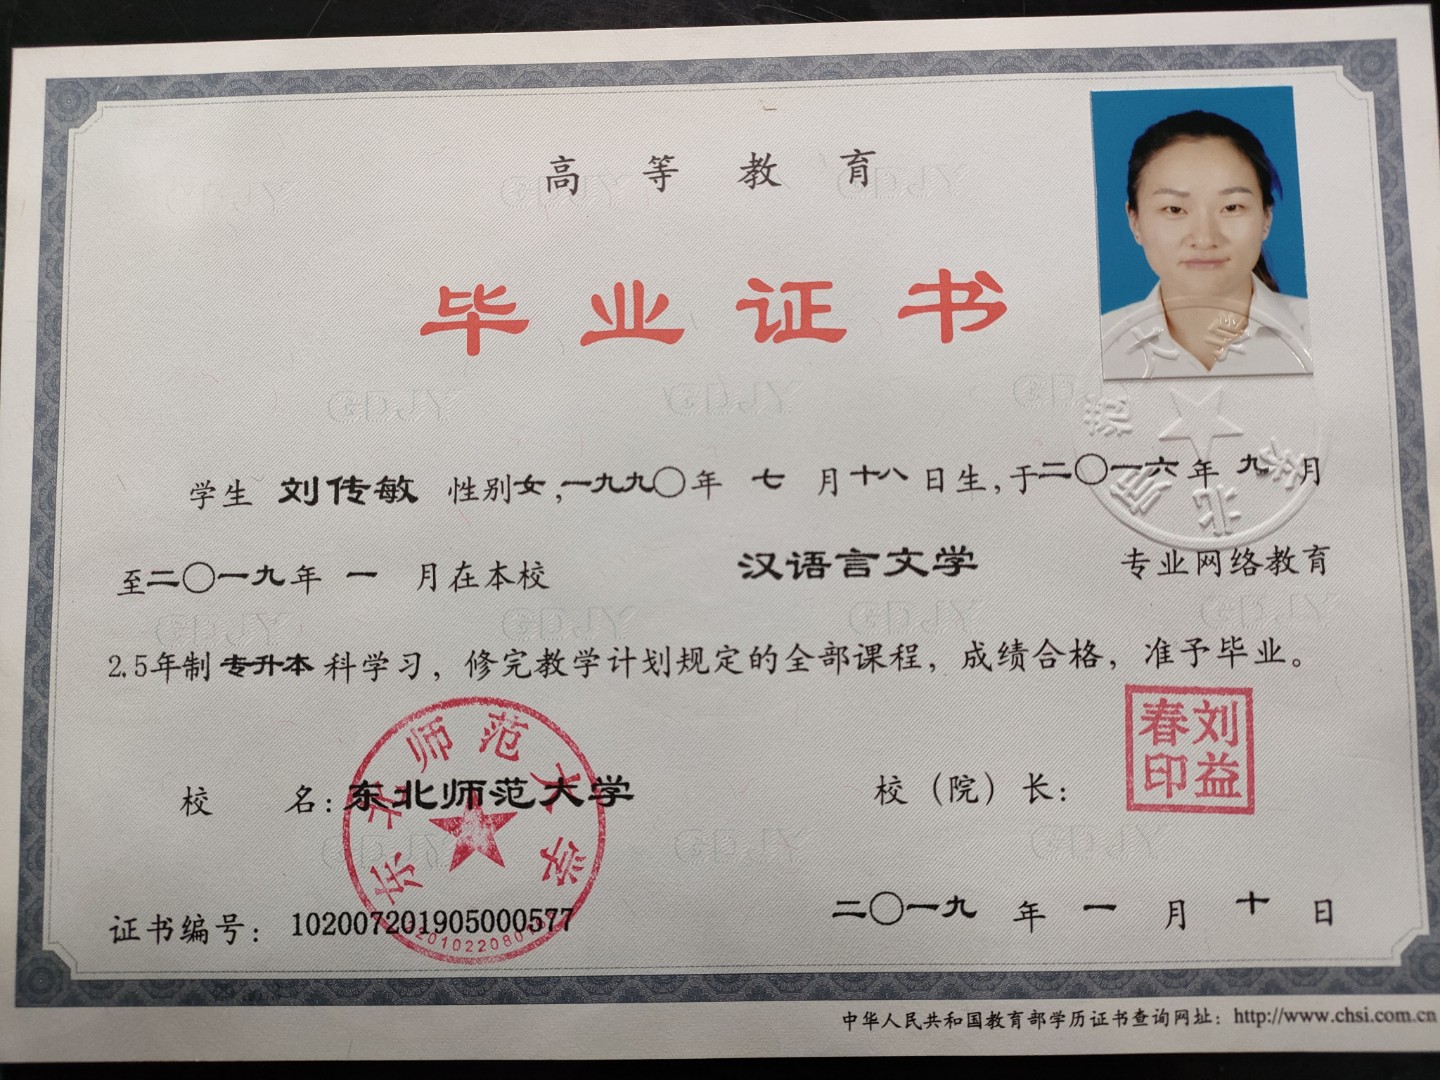 高等教育
毕业证书
学生 刘传敏 性别女,一九九〇年 七 月十八日生,于二〇一六年 九 月
至二〇一九年 一 月在本校 汉语言文学 专业网络教育
2.5年制 专升本 科学习，修完教学计划规定的全部课程，成绩合格，准予毕业。
校 名: 东北师范大学
校（院）长:
刘益春印
东北师范大学
证书编号: 102007201905000577
二〇一九 年 一 月 十 日
中华人民共和国教育部学历证书查询网址: http://www.chsi.com.cn